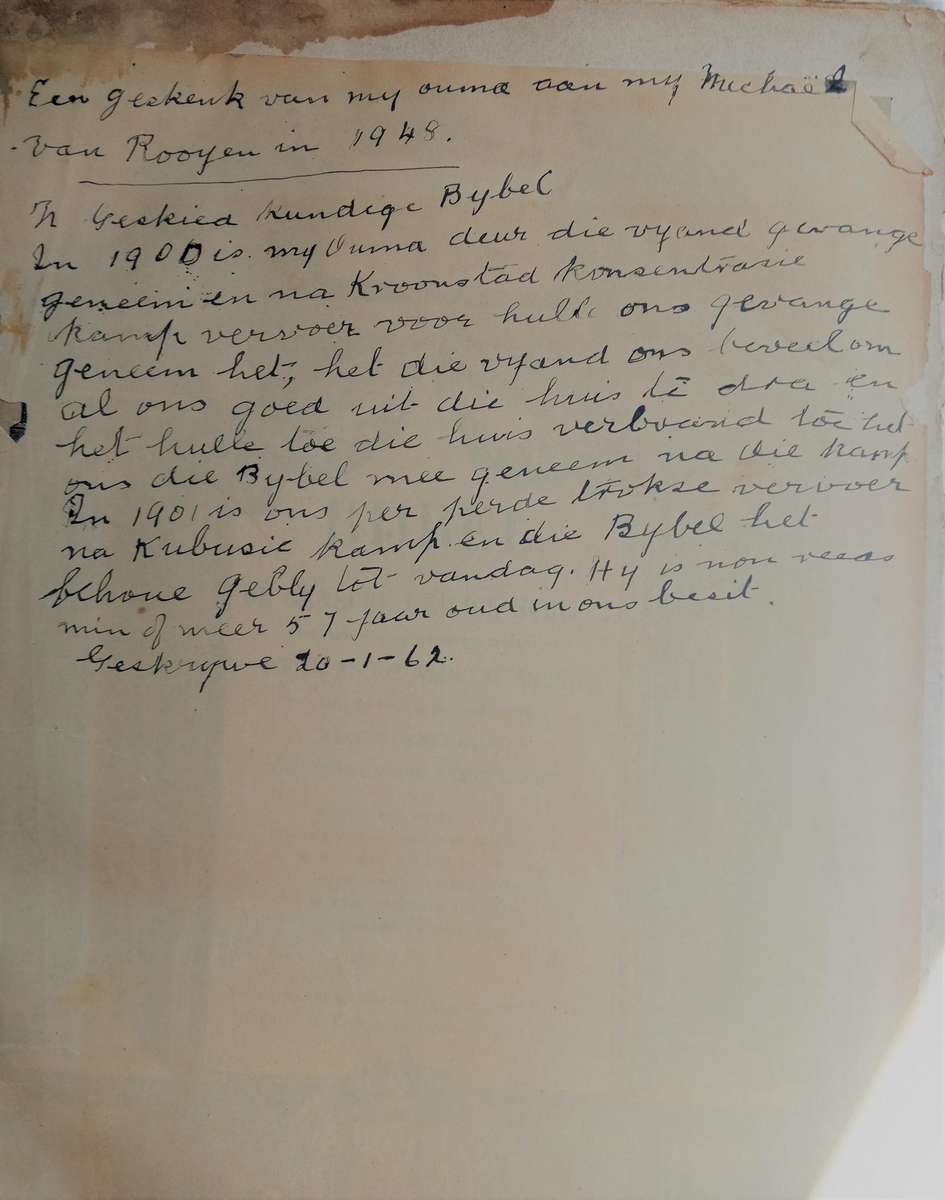 Een geskenk van my ouma aan my Michaël
van Rooyen in 1948.
'n Geskied kundige Bybel
In 1900 is my Ouma deur die vyand gevange
geneem en na Kroonstad konsentrasie
kamp vervoer voor hulle ons gevange
geneem het, het die vyand ons beveel om
al ons goed uit die huis te dra en
het hulle toe die huis verbrand toe het
ons die Bybel mee geneem na die kamp
In 1901 is ons per perde trokse vervoer
na Kubusie kamp en die Bybel het
behoue gebly tot vandag. Hy is non reeds
min of meer 57 jaar oud in ons besit.
Geskrywe 20-1-62.